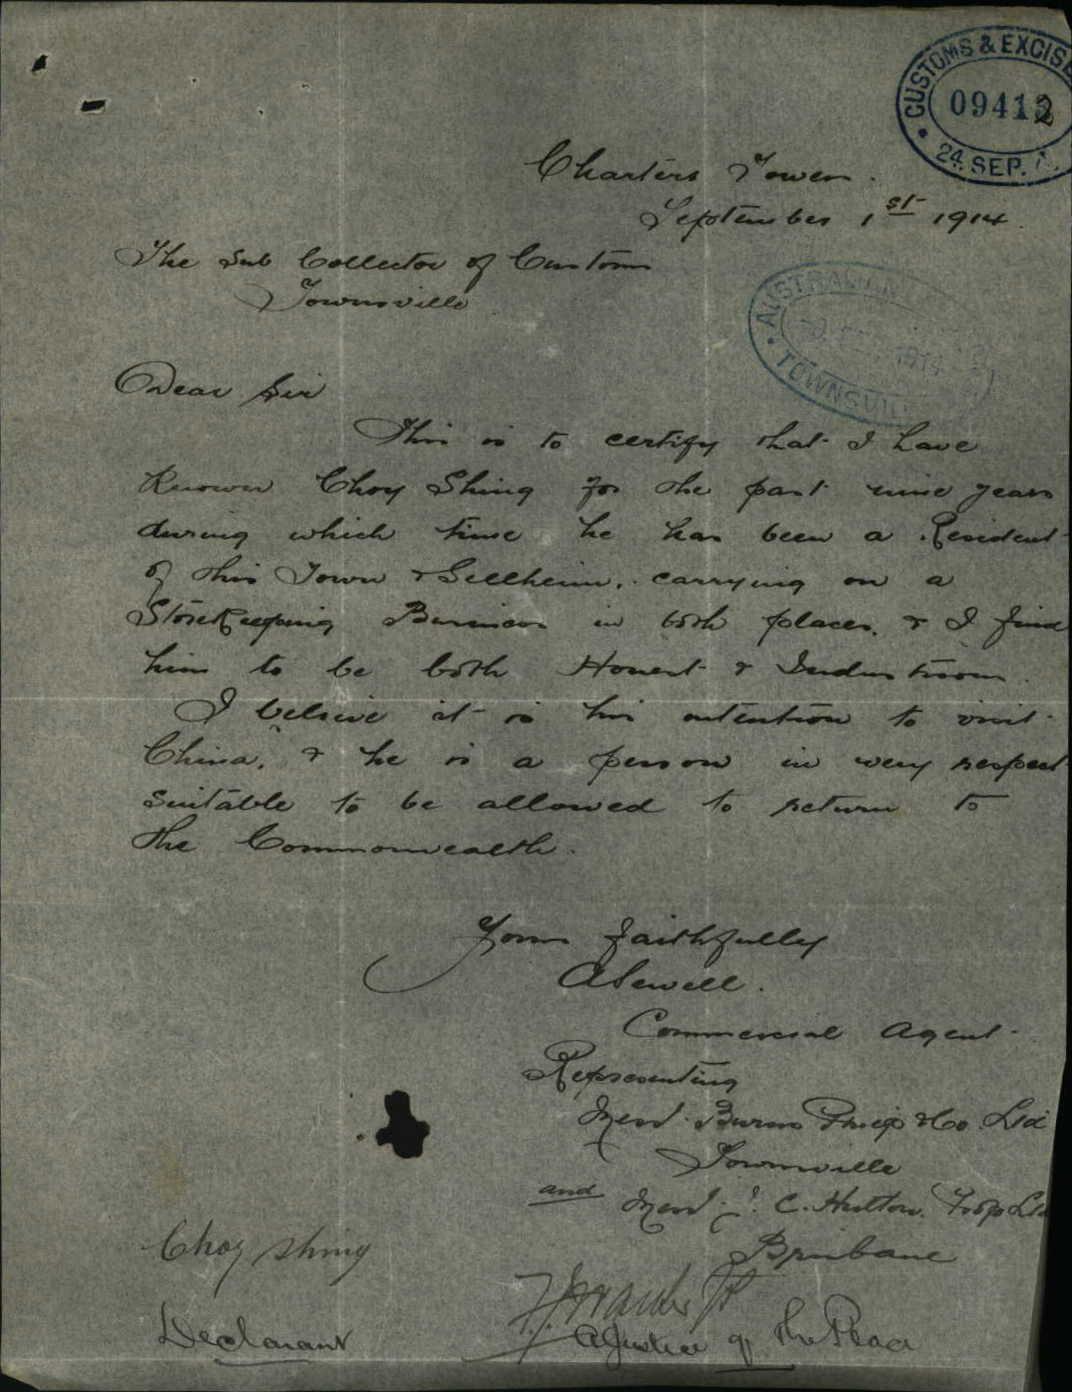 CUSTOMS & EXCISE
09412
24 SEP.
Charters Towers.
September 1st 1914.
The Sub Collector of Customs
Townsville.
AUSTRALIA
1914
TOWNSVILLE
Dear Sir
This is to certify that I have
Known Choy Shing for the past nine years
during which time he has been a Resident
of this Town & Sellheim, carrying on a
StoreKeeping Business in both places, & I find
him to be both Honest & Industrious.
I beleive it is his intention to visit
China, & he is a person in very respect
suitable to be allowed to return to
the Commonwealth.
Yours faithfully
A Sewell.
Commercial Agent
Representing
Mess. Burns Philp & Co. Ltd
Townsville
and Mess. J. C. Hutton Ltd
Brisbane
Choy Shing
Declarant
A Justice of the Peace